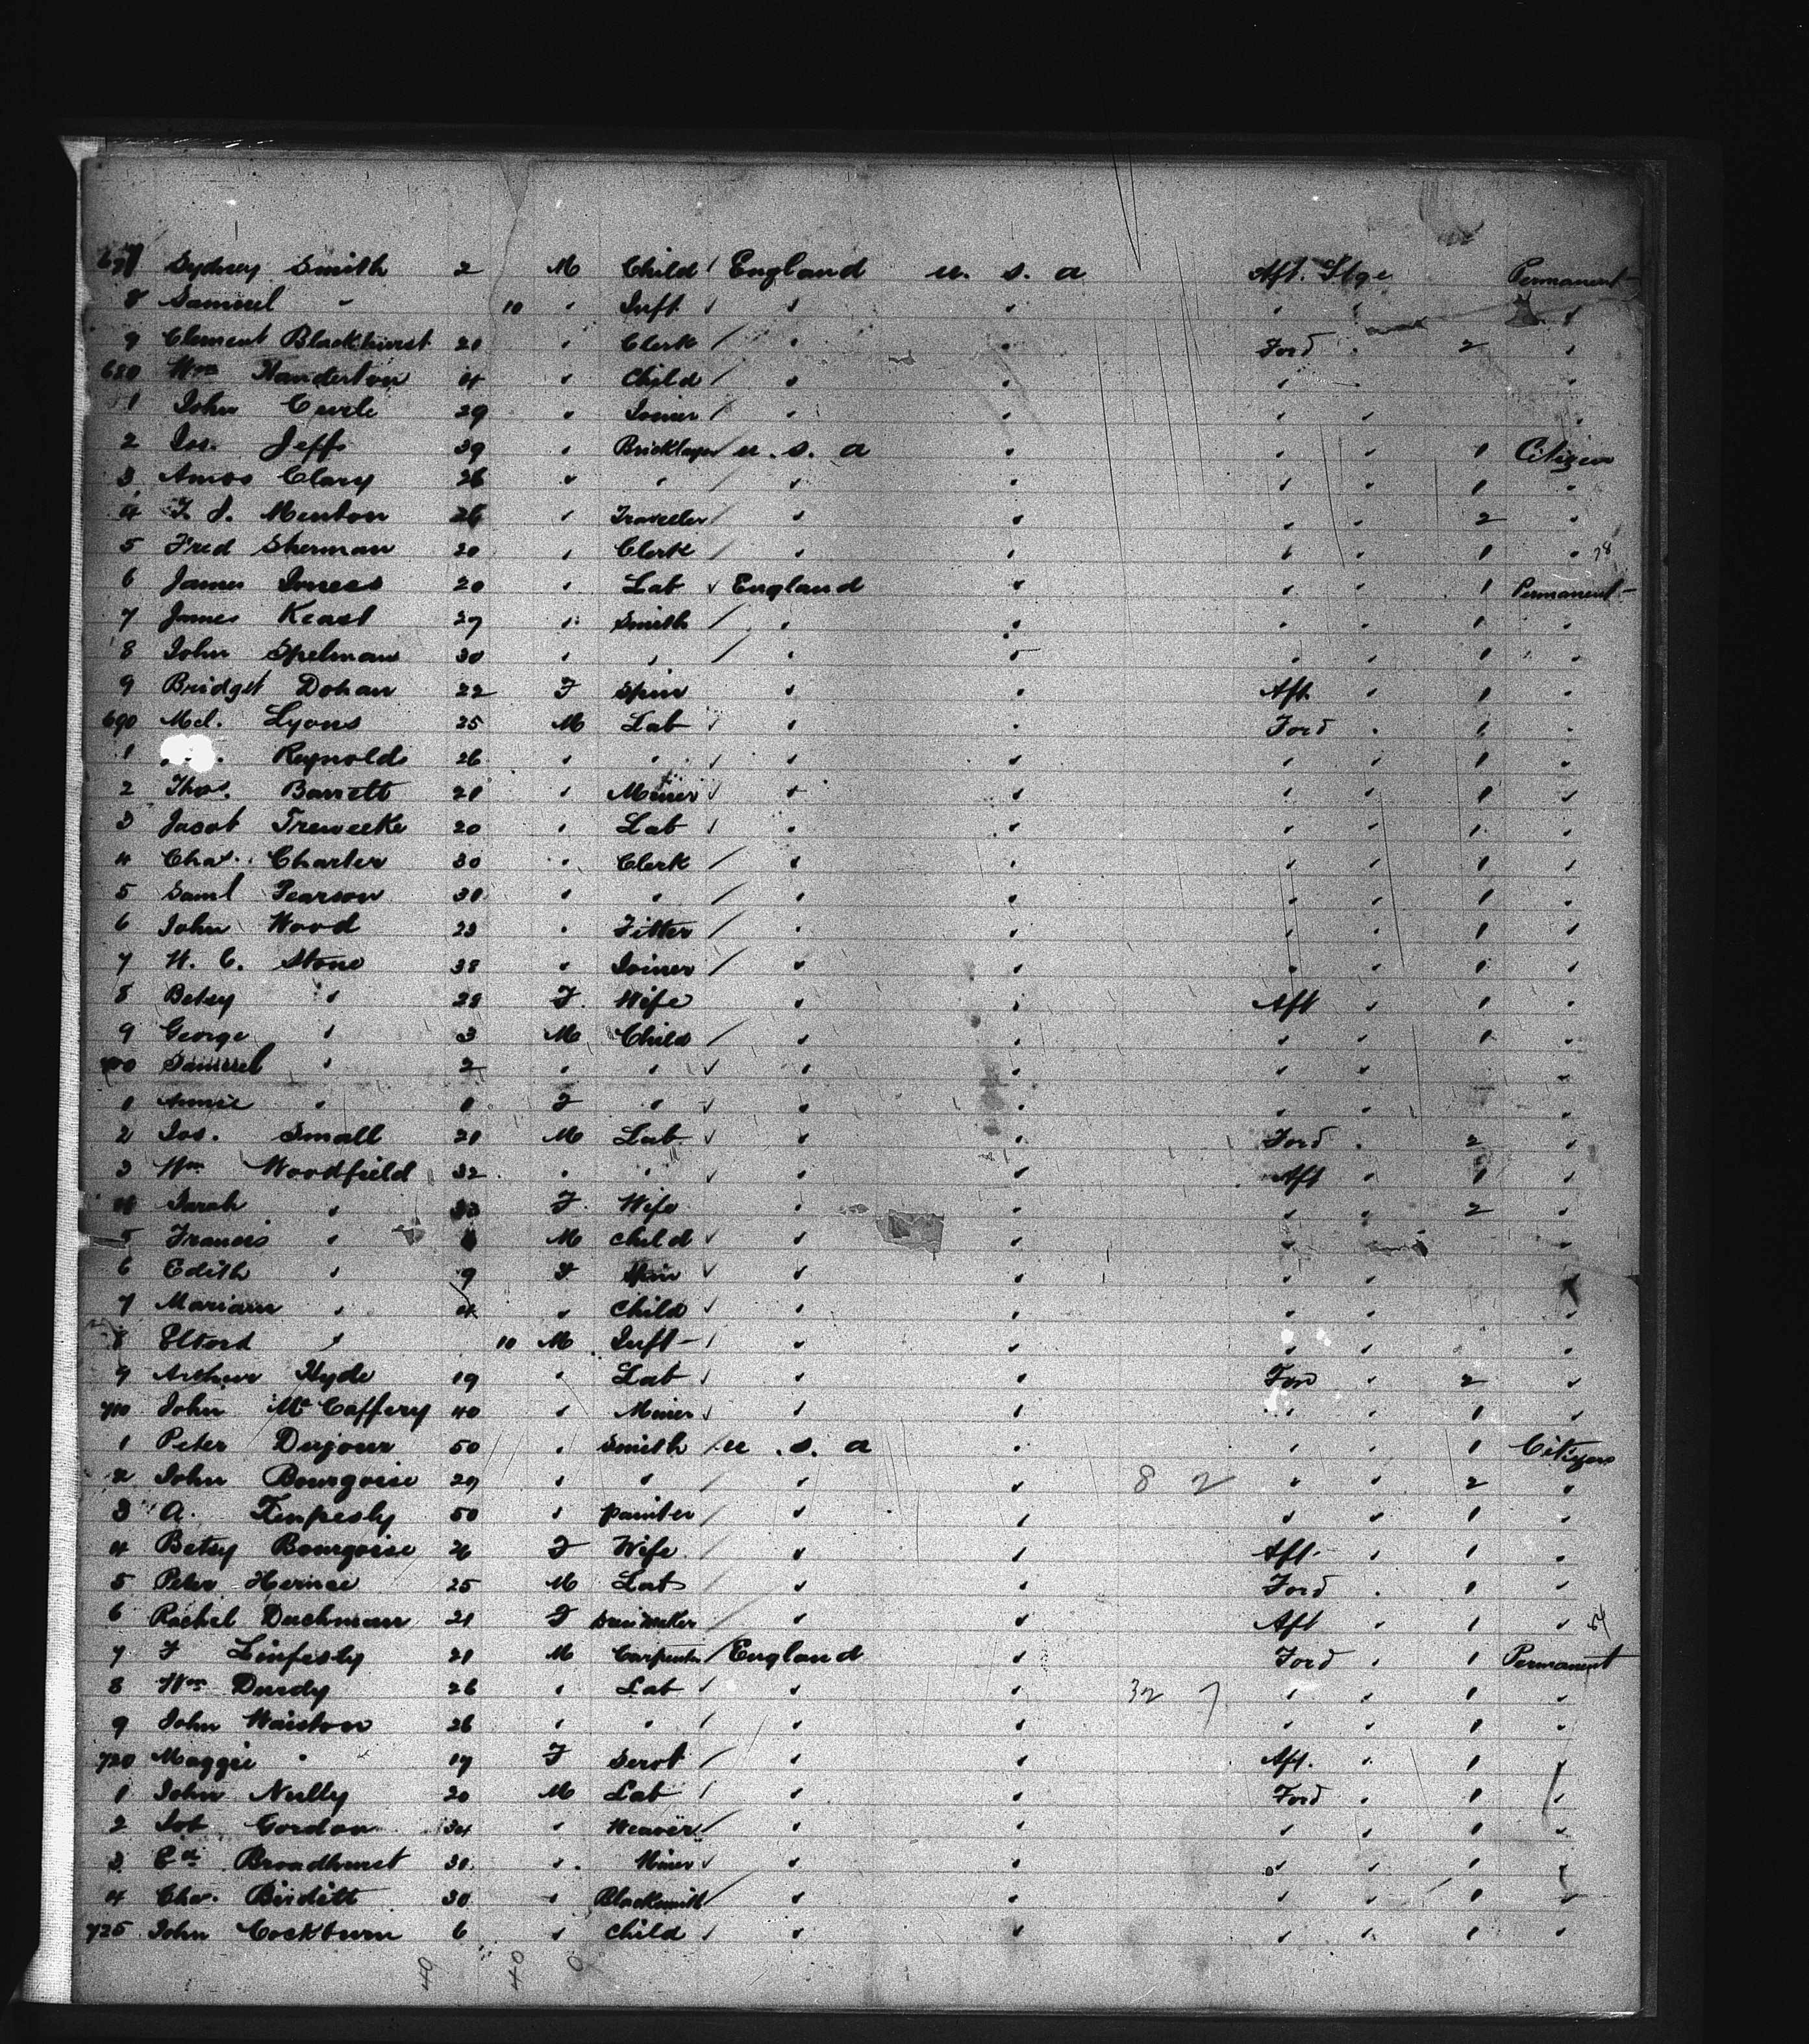 677 Sydney Smith 2 M Child / England u. s. a Aft. Stge Permanent
8 Samuel " 10 " Inft " " " " "
9 Clement Blackhurst 21 " Clerk / " " Ford " 2 "
680 Wm Handerton 4 " Child / " " " " "
1 John Curle 29 " Joiner / " " " " "
2 Jos. Jeffs 39 " Bricklayer / u. s. a " " " 1 Citizen
3 Amos Clary 26 " " / " " " " 1 "
4 F. J. Menton 26 " Traveller / " " " " 2 "
5 Fred Sherman 20 " Clerk / " " " " 1 "
6 James 20 " Lab England " " " 1 Permanent
7 James Keast 27 " Smith / " " " " 1 "
8 John Spelman 30 " " / " " " " 1 "
9 Bridget Dohan 22 F Spin " " Aft " 1 "
690 Mcl. Lyons 25 M Lab " " Ford " 1 "
1 Reynolds 26 " " " " " " 1 "
2 Thos. Barrett 21 " Miner " " " " 1 "
3 Jacob Treweeke 20 " Lab " " " " 1 "
4 Chas. Charter 30 " Clerk / " " " " 1 "
5 Saml Pearson 31 " " / " " " " 1 "
6 John Wood 23 " Fitter / " " " " 1 "
7 H. C. Stone 38 " Joiner / " " " " 1 "
8 Betsy " 28 F Wife " " Aft " 1 "
9 George " 3 M Child / " " " " 1 "
700 Samuel " 2 " " " " " " "
1 Annie " 1 F " " " " " "
2 Jos. Small 21 M Lab " " Ford " 2 "
3 Wm Woodfield 32 " " " " Aft " 1 "
4 Sarah " 33 F Wife " " " " 2 "
5 Francis " M Child " " " " "
6 Edith " 9 F Spin " " " "
7 Mariam " 4 " Child " " " " "
8 " 10 M Inft " " " " "
9 Arthur Hyde 19 " Lab " " For " 2 "
710 John McCaffery 40 " Miner " " " " 1 "
1 Peter Dujour 50 " Smith / u. s. a " " " 1 Citizen
2 John Bourgoise 29 " " / " " 8 2 " " 2 "
3 A. 50 " painter / " " " " 1 "
4 Betsy Bourgoise 26 F Wife / " " Aft " 1 "
5 Peter 25 M Lab / " " Ford " 1 "
6 Rachel Duchman 21 F / " " Aft " 1 "
7 F Linfesty 21 M Carpenter / England " Ford " 1 Permanent
8 Wm Durdy 26 " Lab " " 32 7 " " 1 "
9 John Waiston 26 " " / " " " " 1 "
720 Maggie " 17 F Servt / " " Aft. " 1 "
1 John Nully 20 M Lab / " " Ford " 1 "
2 Job Gordon 34 " Weaver / " " " " 1 "
3 Ed Broadhurst 31 " Miner " " " " 1 "
4 Chas. Birditt 30 " Blacksmith / " " " " 1 "
725 John Cockburn 6 " Child " " " " 1 "